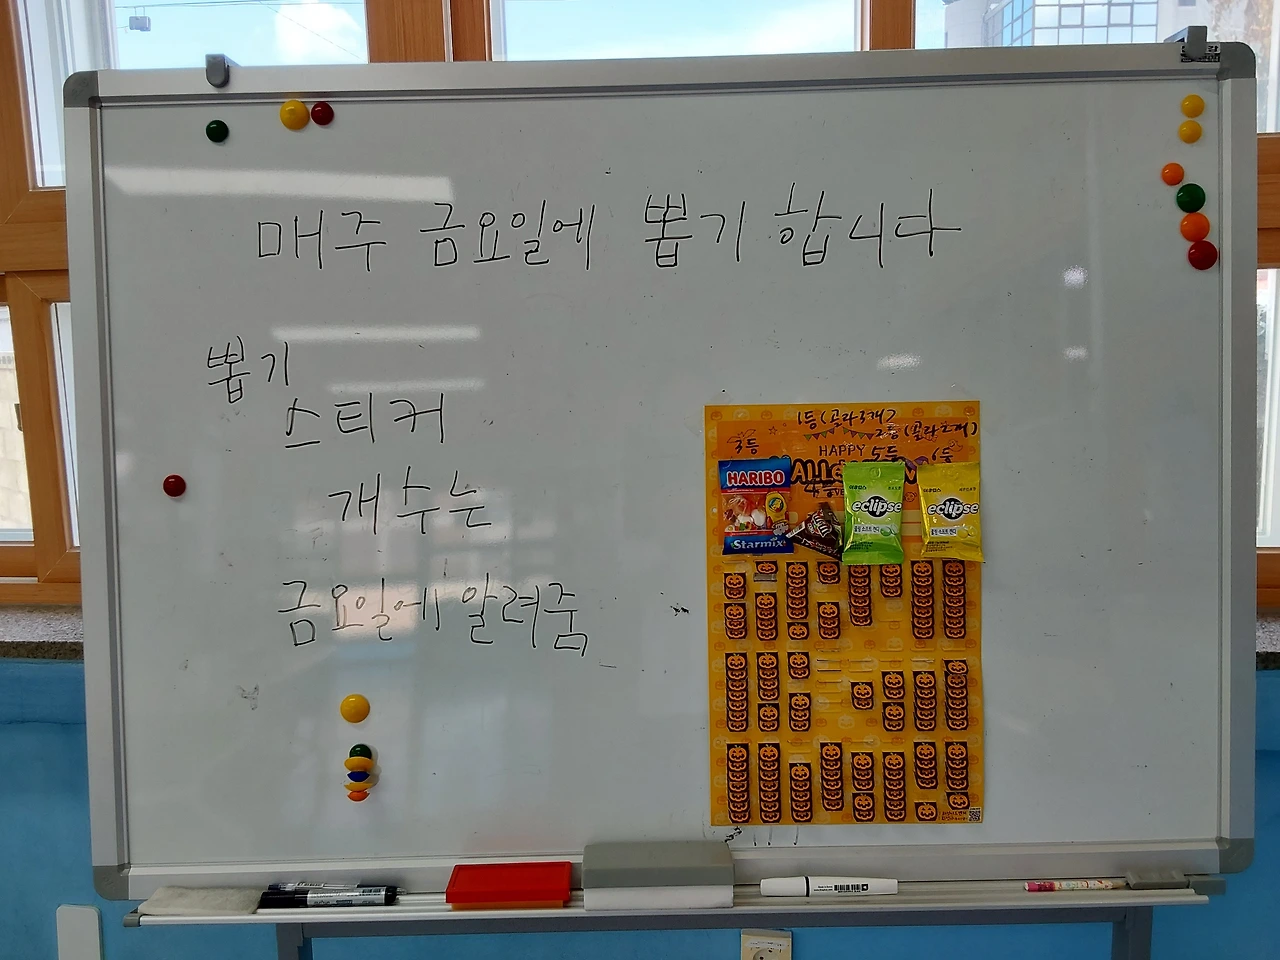 매주 금요일에 뽑기 합니다
뽑기
스티커
개수는
금요일에 알려줌
1등(골라3개)
2등(골라2개)
3등
HAPPY
5등
6등
4등
HARIBO
Starmix
eclipse
eclipse